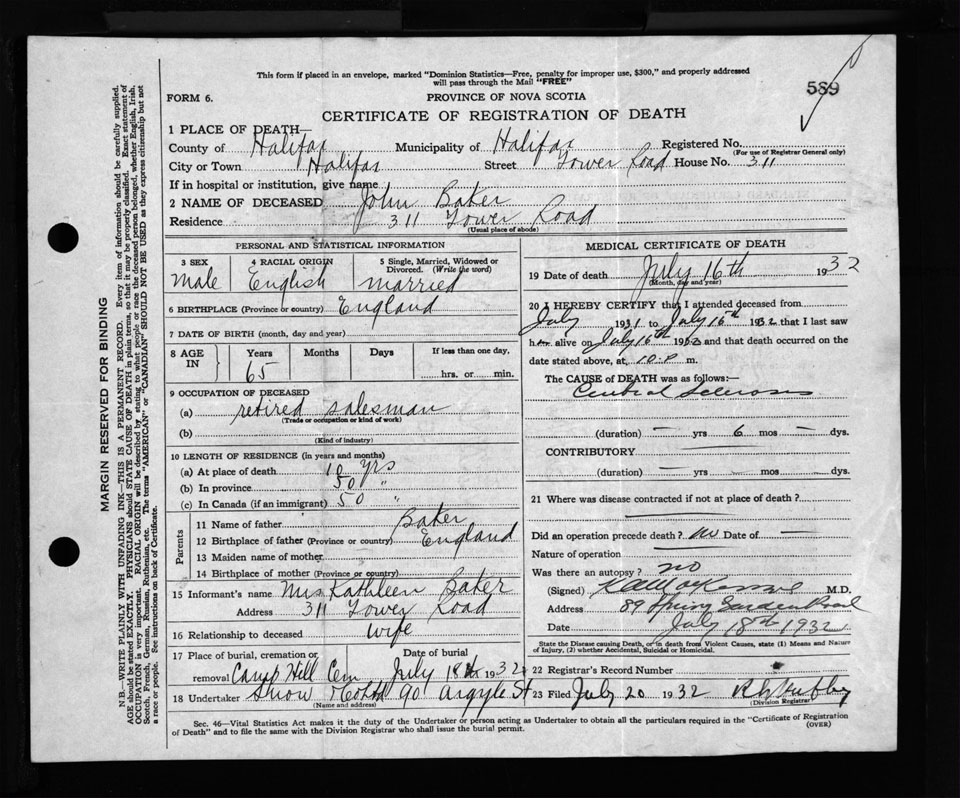 This form if placed in an envelope, marked "Dominion Statistics—Free, penalty for improper use, $300," and properly addressed
will pass through the Mail "FREE"
589
FORM 6.
PROVINCE OF NOVA SCOTIA
CERTIFICATE OF REGISTRATION OF DEATH
1 PLACE OF DEATH—
County of Halifax Municipality of Halifax Registered No.
(For use of Registrar General only)
City or Town Halifax Street Tower Road House No. 311
If in hospital or institution, give name
2 NAME OF DECEASED John Baker
Residence 311 Tower Road
(Usual place of abode)
PERSONAL AND STATISTICAL INFORMATION
3 SEX 4 RACIAL ORIGIN 5 Single, Married, Widowed or Divorced. (Write the word)
Male English married
6 BIRTHPLACE (Province or country) England
7 DATE OF BIRTH (month, day and year)
8 AGE IN Years Months Days If less than one day,
65 hrs. or min.
9 OCCUPATION OF DECEASED
(a) retired salesman
(Trade or occupation or kind of work)
(b)
(Kind of industry)
10 LENGTH OF RESIDENCE (in years and months)
(a) At place of death 10 yrs
(b) In province 50 "
(c) In Canada (if an immigrant) 50 "
Parents
11 Name of father Baker
12 Birthplace of father (Province or country) England
13 Maiden name of mother
14 Birthplace of mother (Province or country)
15 Informant's name Mrs Kathleen Baker
Address 311 Tower Road
16 Relationship to deceased wife
17 Place of burial, cremation or removal Date of burial
Camp Hill Cem July 18th 1932
18 Undertaker Snow 90 Argyle St
(Name and address)
MEDICAL CERTIFICATE OF DEATH
19 Date of death July 16th 1932
(Month, day and year)
20 I HEREBY CERTIFY that I attended deceased from
July 1931 to July 16th 1932 that I last saw
him alive on July 16th 1932 and that death occurred on the
date stated above, at 10 P m.
The CAUSE of DEATH was as follows:—
Sclerosis
(duration) — yrs 6 mos — dys.
CONTRIBUTORY —
(duration) — yrs — mos — dys.
21 Where was disease contracted if not at place of death?
Did an operation precede death? no Date of —
Nature of operation
Was there an autopsy? no
(Signed) M.D.
Address 89 Spring Garden Road
Date July 18th 1932
State the Disease causing Death, or in death from Violent Causes, state (1) Means and Nature
of Injury, (2) whether Accidental, Suicidal or Homicidal.
22 Registrar's Record Number
23 Filed July 20 1932
(Division Registrar)
Sec. 46—Vital Statistics Act makes it the duty of the Undertaker or person acting as Undertaker to obtain all the particulars required in the "Certificate of Registration
of Death" and to file the same with the Division Registrar who shall issue the burial permit.
(OVER)
MARGIN RESERVED FOR BINDING
N.B.—WRITE PLAINLY WITH UNFADING INK—THIS IS A PERMANENT RECORD. Every item of information should be carefully supplied.
AGE should be stated EXACTLY. PHYSICIANS should STATE CAUSE OF DEATH in plain terms, so that it may be properly classified. Exact statement of
OCCUPATION is very important. RACIAL ORIGIN will be described by stating to what people or race the deceased person belonged, whether English, Irish,
Scotch, French, German, Russian, Ruthenian, etc. The terms "AMERICAN" or "CANADIAN" SHOULD NOT BE USED as they express citizenship but not
a race or people. See instructions on back of Certificate.